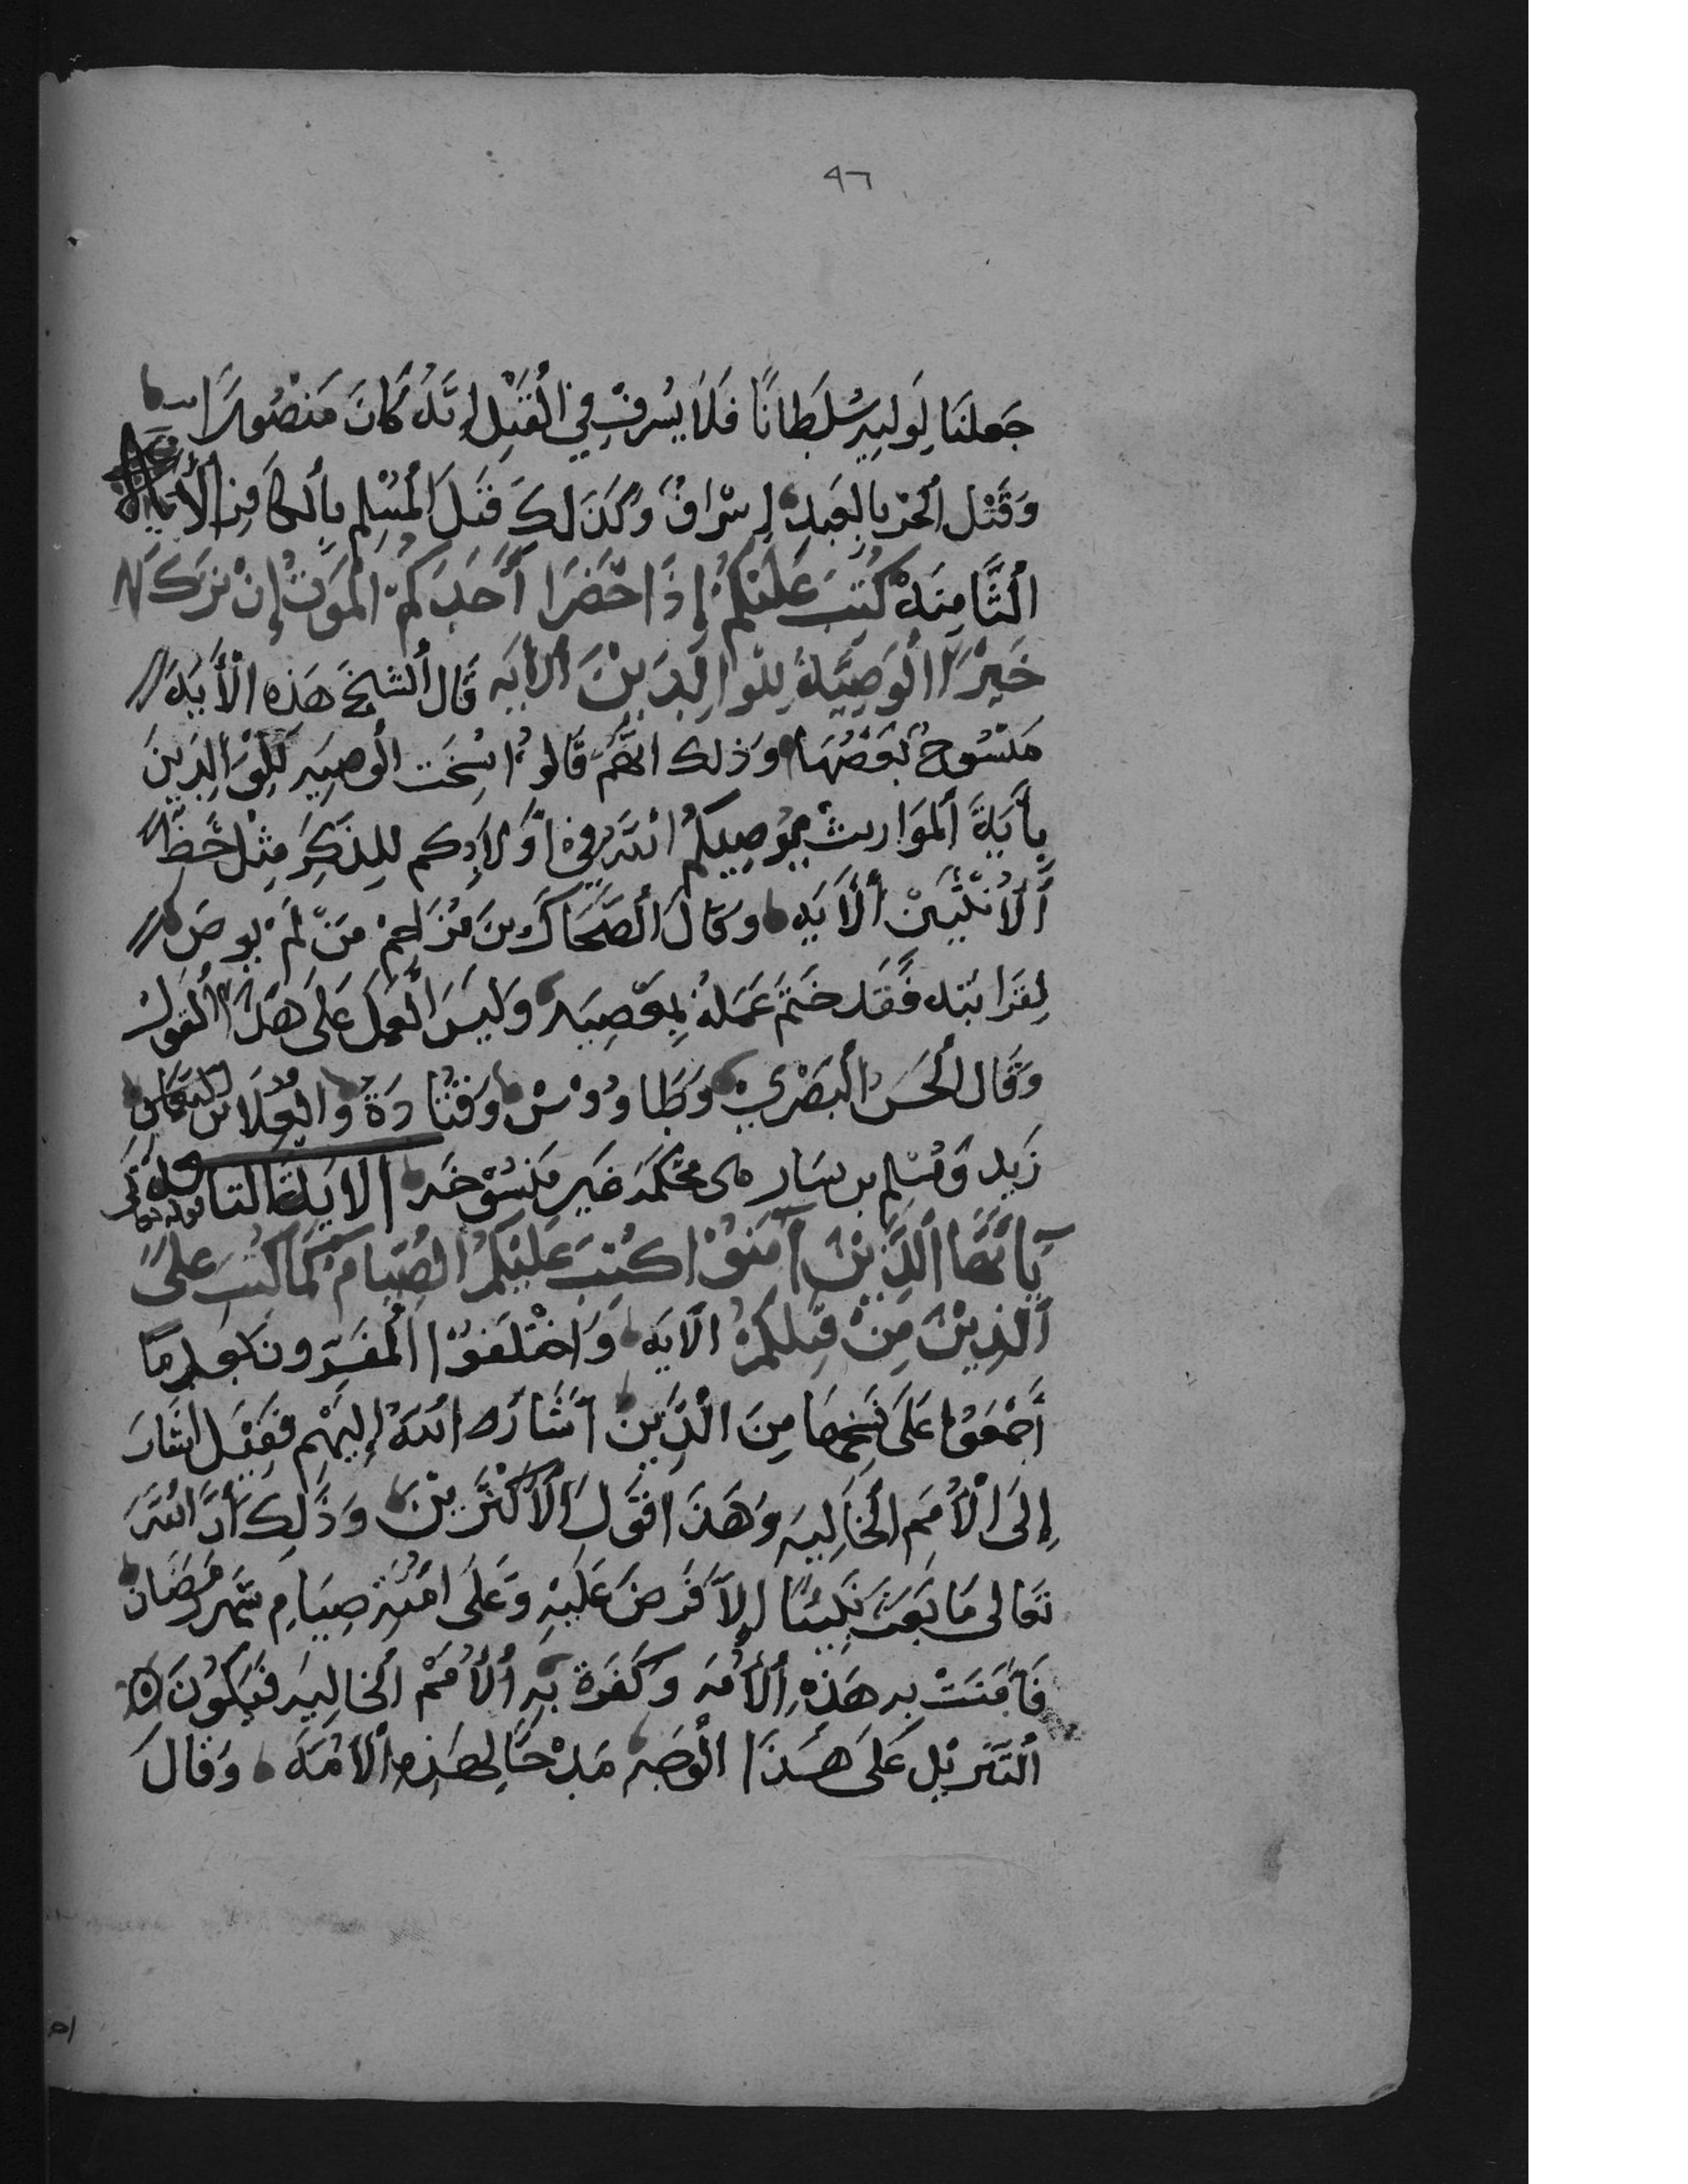 ٩٦
جَعلنَا لِوَليِهِ سُلطَانًا فَلاَ يُسرفْ فِي القَتْلِ إنَّهُ كَانَ مَنصُورًا
وَقَتْل الحُرّ بِالعَبدِ إسْرَافٌ وَكَذَلِكَ قَتلَ المُسْلِم بِالكَافِر الأيَة
الثَّامِنَهْ كُتِبَ عَلَيْكُمُ إذَا حَضَرَا أَحَدَكُمُ المَوتُ إنْ تَرَكَ
خَيْرًا الوَصِيَّةُ لِلوَالِدَيْنَ الأيَه قَال الشيخَ هَذِه الأَيَة
مَنْسُوخُ بَعضُهَا وَذلك انَّهُم قَالوُا نُسِخَت الوصِيَه لِلوَالِدَينَ
بِأيَةَ المَوَاريث يُوصِيكُمُ اللهُ في أولاَدِكم لِلذَكِرَ مِثْل حَظّ
الأُنْثَيَيْنْ الأَيَه وَقَالَ الضَّحَاكَ بنَ مُزَاحِمْ مَنّ لَمْ يوصَ
لِقَرَابَتِه فَقَد خَتَمَ عَمَلهُ بِمَعْصِيَه وَلَيسَ العَمَل عَلَى هَذَا القَول
وَقَال الحَسَن البَصْرِي وَطَاوُوسْ وَقَتَادَةُ وَالعُلاَ بن
زَيد وَمُسْلِم بن يسَار هى محْكَمَه غَير مَنسُوْخَه الايَة التاسعة
يَا أَيُّهَا الَّذِيْنَ آمَنُوْا كُتِبَ عَلَيْكُمُ الصِيَامُ كَمَا كُتِبَ عَلَى
الَّذِيْنَ مِنْ قَبلِكُمْ الآيَه وَاخْتَلَفُوْا المُفَسِّرُون بَعدمَا
أَجْمَعُوا عَلَى نَسْخِهَا مِنَ الَّذِيْن أَشَارَه اللهُ إلَيهِم فَقِيْل اشَارَ
إلَى الْأُمَم الخَالِيَه وَهَذَا قَولَ الأَكْثَرِيْنَ وَذَلِكَ أَنَّ اللهَ
تَعالى مَا بَعَثَ نَبِيًّا إلاَّ فَرَضَ عَلَيْهِ وَعَلَى امَّتِهِ صِيَامِ شَهر رَمَضَان
فَآمَنَتْ بِهِ هَذِهِ الأُمَه وَكَفَرَةْ بِهِ الأُمَمْ الخالِيَه فَيَكُونَ
التَنْزِيْل عَلَى هَذَا الوَجه مَدْحًا لِهَذِهِ الأُمَّه وَقَالَ